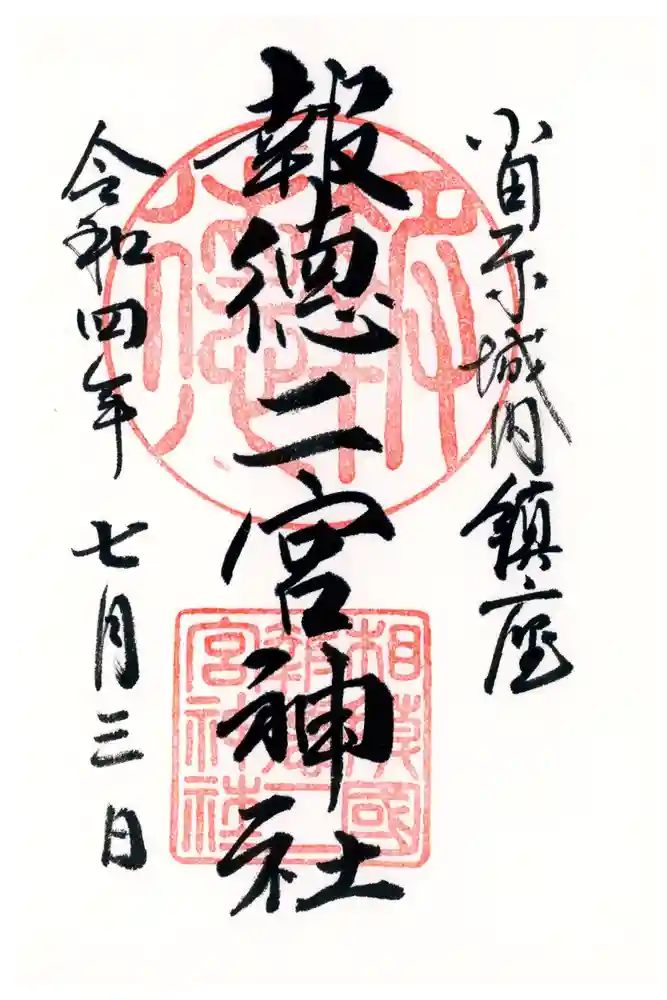 小田原城内鎮座
報徳二宮神社
令和四年 七月三日
相模國
報徳二
宮神社